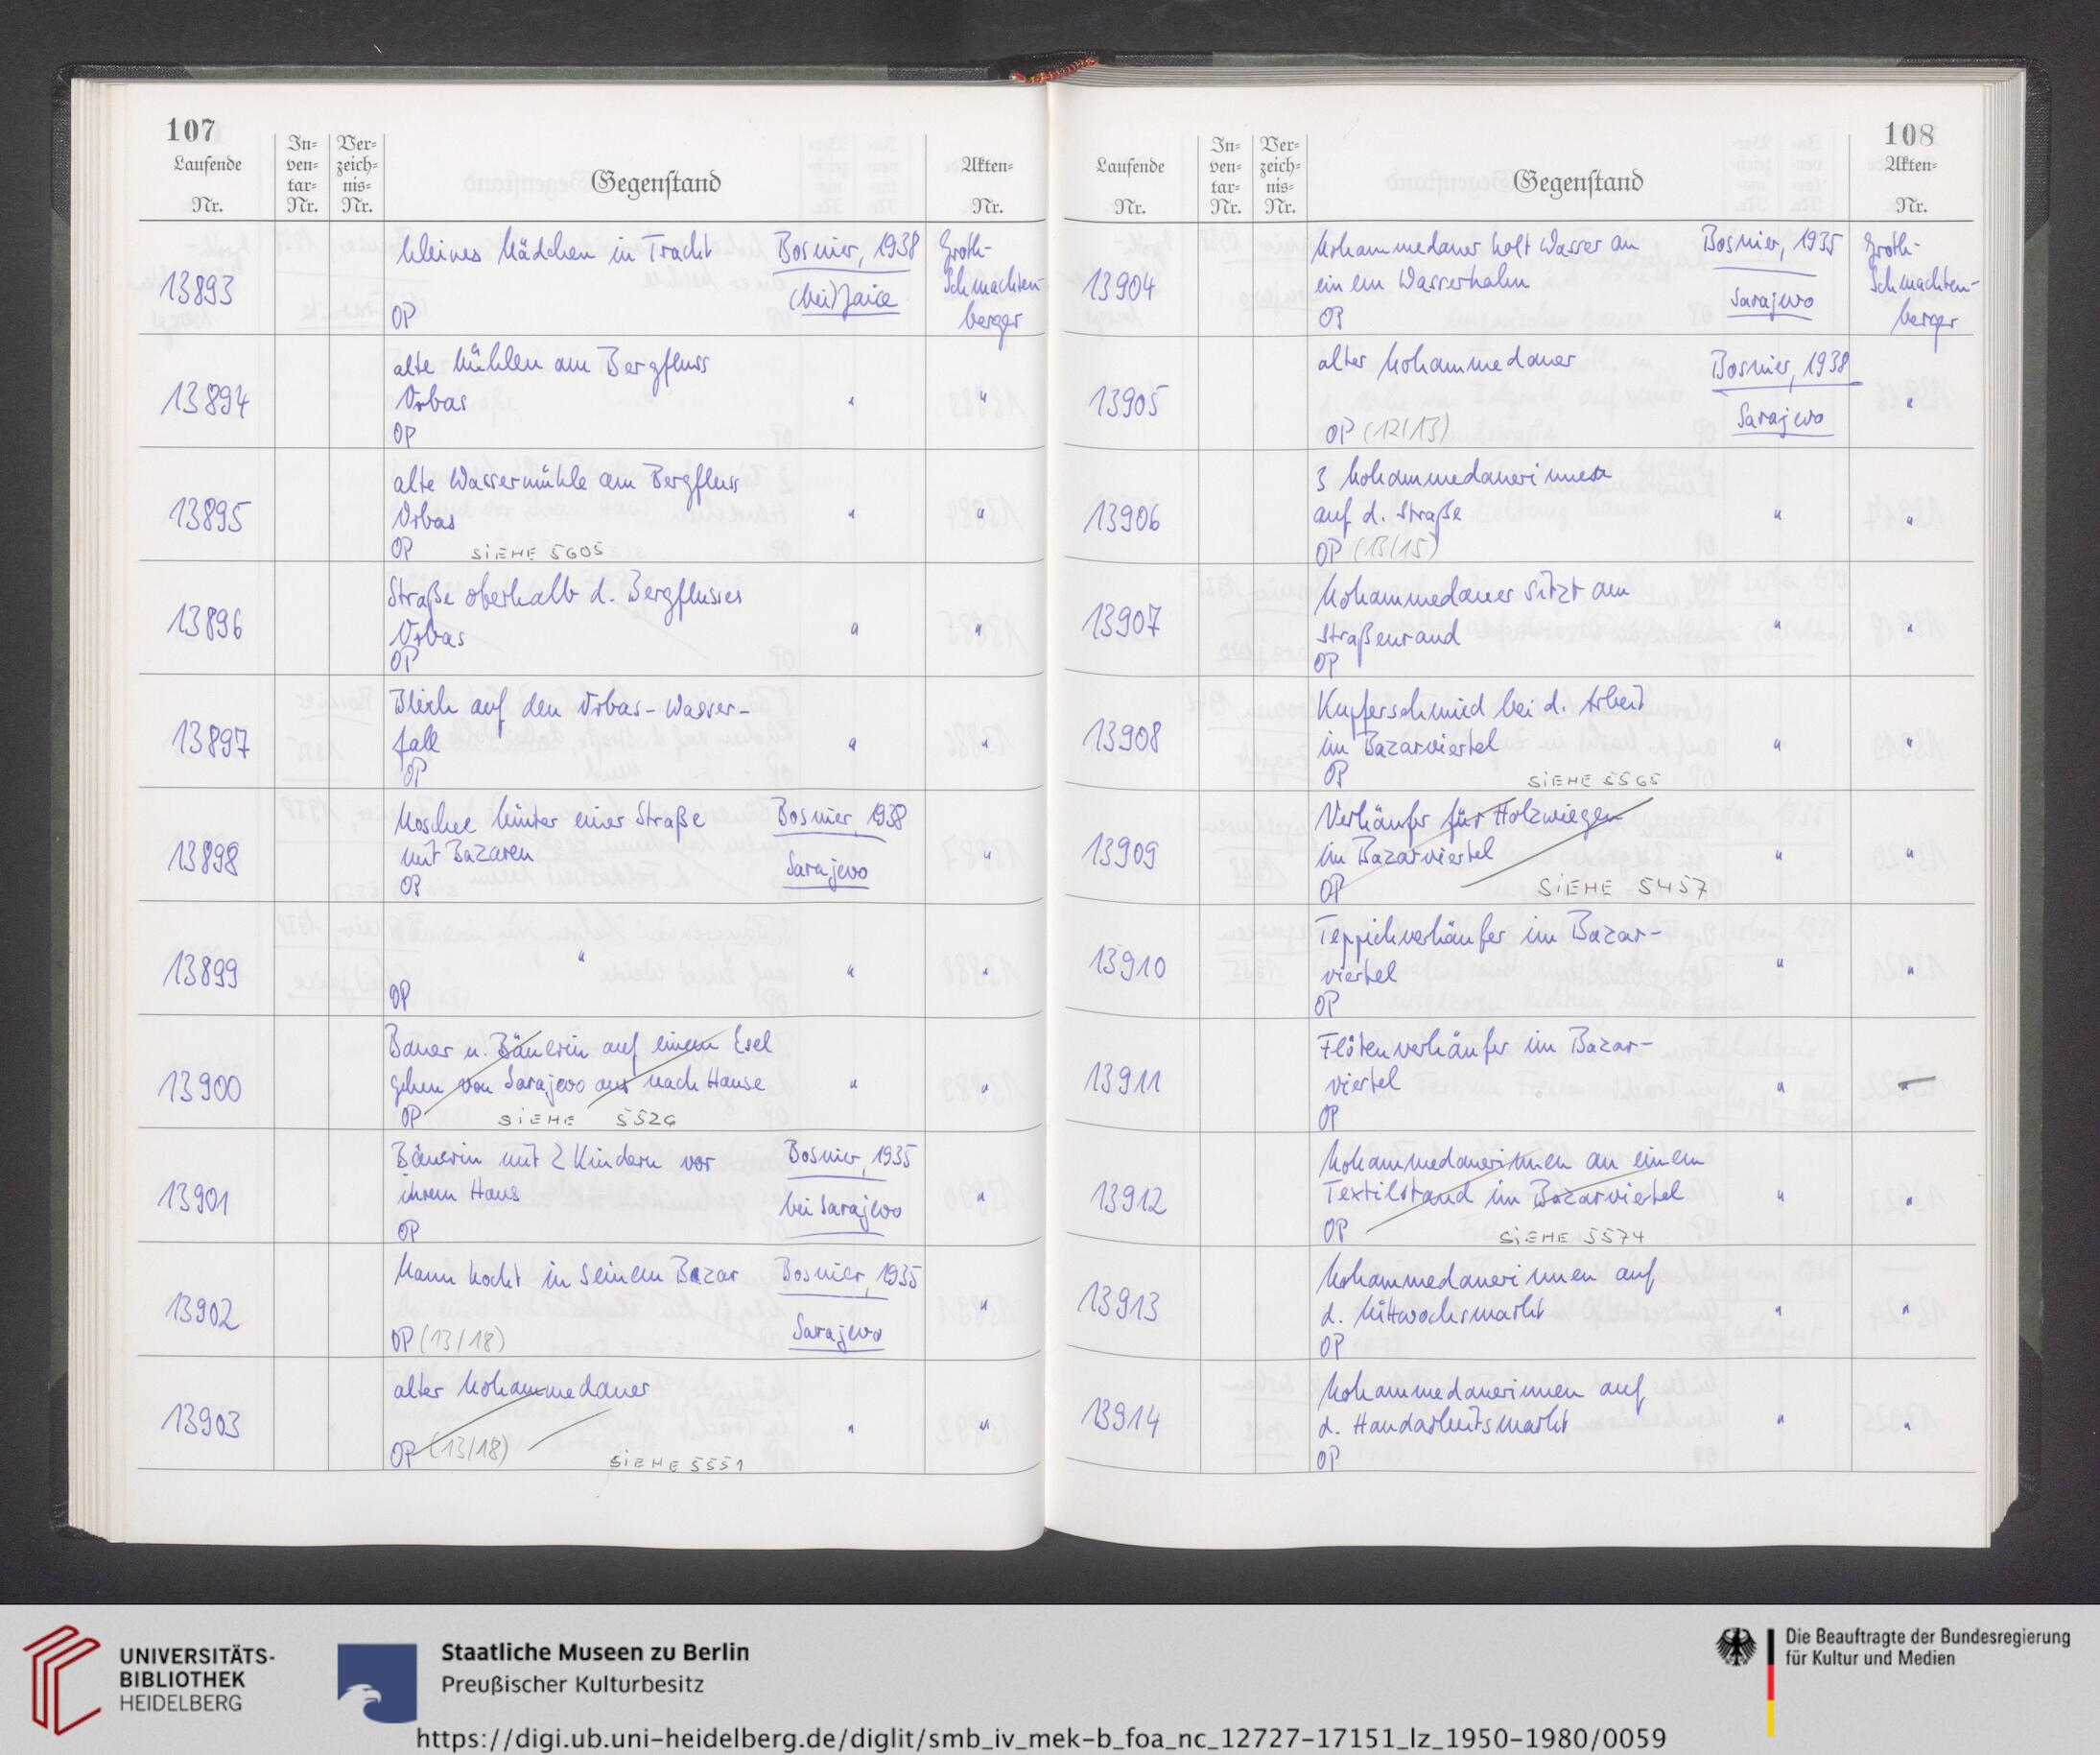 107
Laufende Nr.
In-ven-tar-Nr.
Ver-zeich-nis-Nr.
Gegenstand
Akten-Nr.
13893 kleines Mädchen in Tracht Bosnien, 1938 Groth-
(bei) Jaice Schmachten-
OP berger
13894 alte Mühlen am Bergfluss
Vrbas " "
OP
13895 alte Wassermühle am Bergfluss
Vrbas " "
OP SIEHE 5605
13896 Straße oberhalb d. Bergflusses
Vrbas " "
OP
13897 Blick auf den Vrbas-Wasser-
fall " "
OP
13898 Moschee hinter einer Straße Bosnien, 1938
mit Bazaren Sarajevo "
OP
13899 " " "
OP
13900 Bauer u. Bäuerin auf einem Esel
gehen von Sarajevo aus nach Hause " "
OP SIEHE 5526
13901 Bäuerin mit 2 Kindern vor Bosnien, 1935
ihrem Haus bei Sarajevo "
OP
13902 Mann hockt in seinem Bazar Bosnien, 1935
Sarajevo "
OP (13/18)
13903 alter Mohammedaner
" "
OP (13/18) SIEHE 5551
108
Laufende Nr.
In-ven-tar-Nr.
Ver-zeich-nis-Nr.
Gegenstand
Akten-Nr.
13904 Mohammedaner holt Wasser an Bosnien, 1935 Groth-
einem Wasserhahn Sarajevo Schmachten-
OP berger
13905 alter Mohammedaner Bosnien, 1938
Sarajevo "
OP (12/13)
13906 3 Mohammedanerinnen
auf d. Straße " "
OP (13/15)
13907 Mohammedaner sitzt am
Straßenrand " "
OP
13908 Kupferschmied bei d. Arbeit
im Bazarviertel " "
OP SIEHE 5565
13909 Verkäufer für Holzwiegen
im Bazarviertel " "
OP SIEHE 5457
13910 Teppichverkäufer im Bazar-
viertel " "
OP
13911 Flötenverkäufer im Bazar-
viertel " "
OP
13912 Mohammedanerinnen an einem
Textilstand im Bazarviertel " "
OP SIEHE 5574
13913 Mohammedanerinnen auf
d. Mittwochsmarkt " "
OP
13914 Mohammedanerinnen auf
d. Handarbeitsmarkt " "
OP
UNIVERSITÄTS-
BIBLIOTHEK
HEIDELBERG
Staatliche Museen zu Berlin
Preußischer Kulturbesitz
Die Beauftragte der Bundesregierung
für Kultur und Medien
https://digi.ub.uni-heidelberg.de/diglit/smb_iv_mek-b_foa_nc_12727-17151_lz_1950-1980/0059